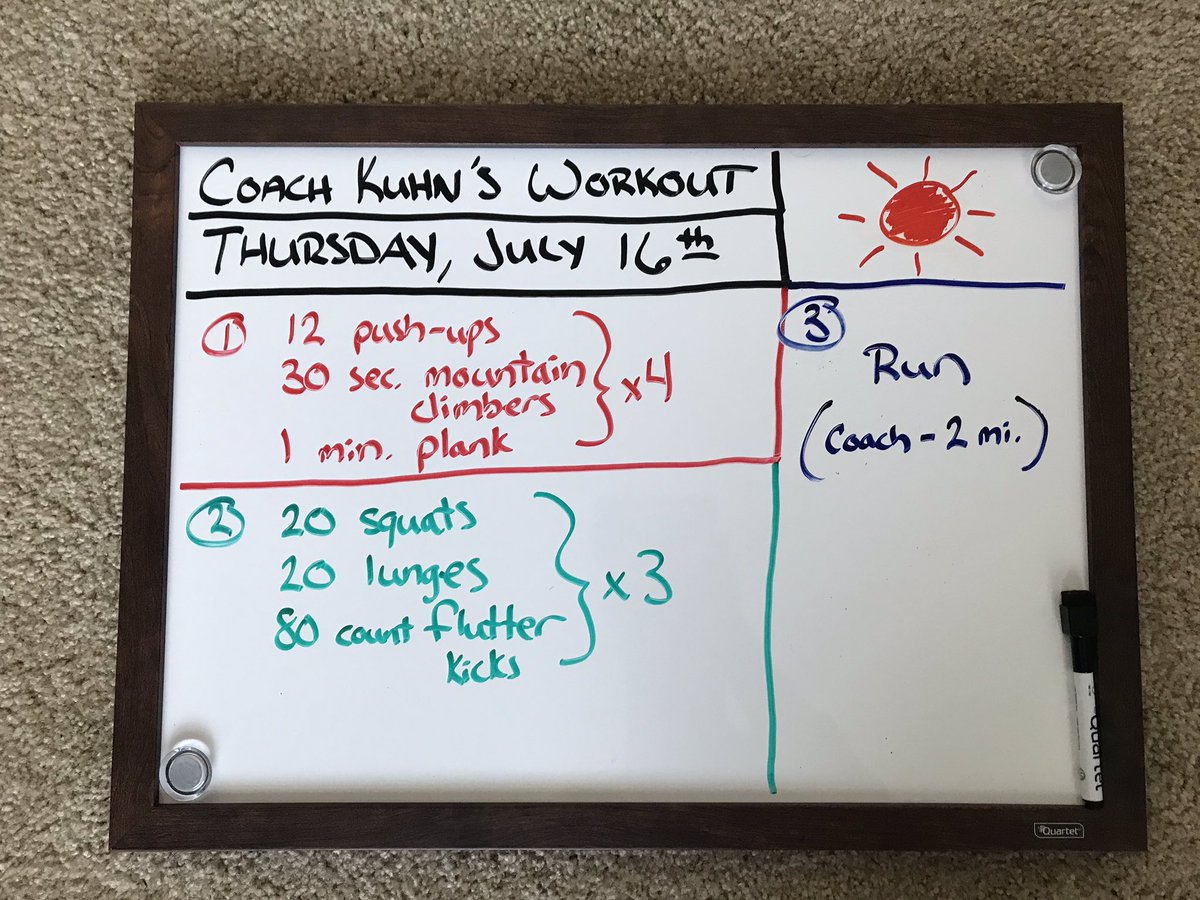 COACH KUHN'S WORKOUT
THURSDAY, JULY 16th
1 12 push-ups
30 sec. mountain
climbers
1 min. plank
x4
2 20 squats
20 lunges
80 count flutter
kicks
x3
3
Run
(Coach - 2 mi.)
Quartet
Quartet